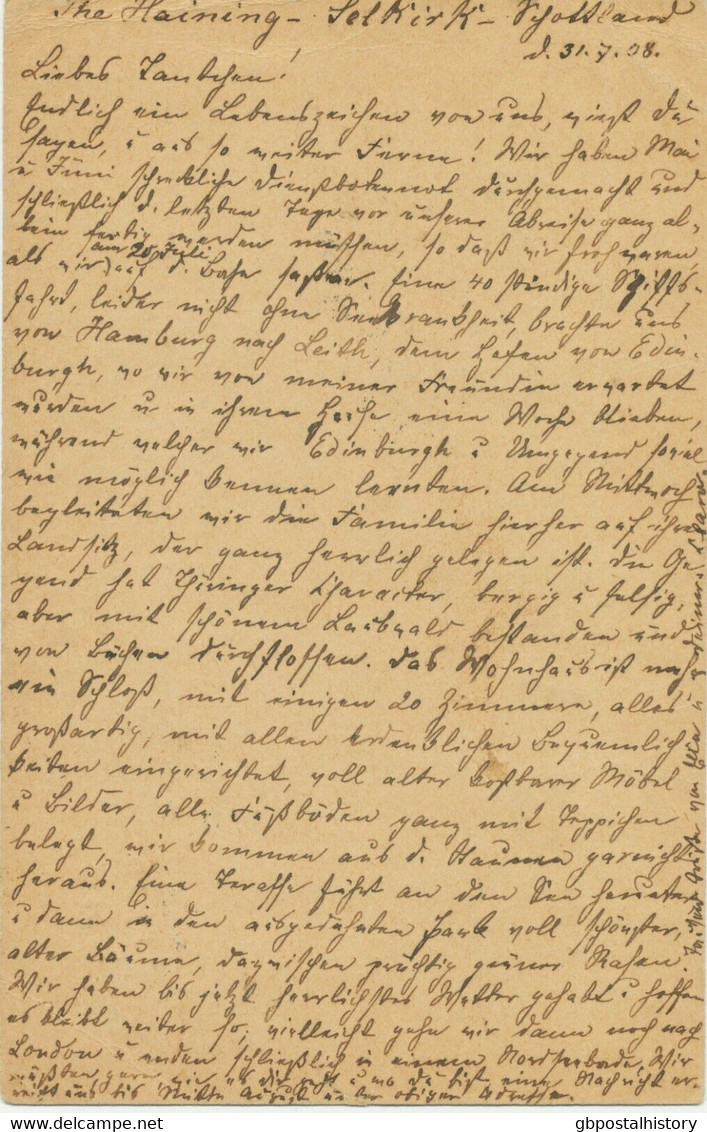 The Haining - Selkirk - Schottland
d. 31.7.08.
Liebes Tantchen!
Endlich ein Lebenszeichen von uns, wirst Du
sagen, u. aus so weiter Ferne! Wir haben Mai
u Juni schreckliche Dienstbotennot durchgemacht und
schließlich d. letzten Tage vor unserer Abreise ganz al-
lein fertig werden müssen, so daß wir froh waren
als wir am 20 Juli auf d. Bahn saßen. Eine 40 stündige Schiffs-
fahrt, leider nicht ohne Seekrankheit, brachte uns
von Hamburg nach Leith, dem Hafen von Edin-
burgh, wo wir von meiner Freundin erwartet
wurden u in ihrem Hause eine Woche blieben,
während welcher wir Edinburgh u Umgegend soviel
wie möglich kennen lernten. Am Mittwoch
begleiteten wir die Familie hierher auf ihren
Landsitz, der ganz herrlich gelegen ist. Die Ge-
gend hat Thüringer Character, bergig u felsig,
aber mit schönem Laubwald bestanden und
von Bächen durchflossen. Das Wohnhaus ist mehr
ein Schloß, mit einigen 20 Zimmern, alles
großartig, mit allen erdenklichen Bequemlich-
keiten eingerichtet, voll alter kostbarer Möbel
u Bilder, alle Fußböden ganz mit Teppichen
belegt, wir kommen aus d. Staunen garnicht
heraus. Eine Terasse führt an den See herunter
u dann in den ausgedehnten Park voll schönster,
alter Bäume, dazwischen prächtig grüner Rasen.
Wir haben bis jetzt herrlichstes Wetter gehabt u hoffen
es bleibt weiter so; vielleicht gehn wir dann noch nach
London u enden schließlich in einem Nordseebade. Wir
wüßten gern wie es dir geht u wo du bist, eine Nachricht er-
reicht uns bis Mitte August unter obiger Adresse.
Grüße von Ella u deiner Clara.